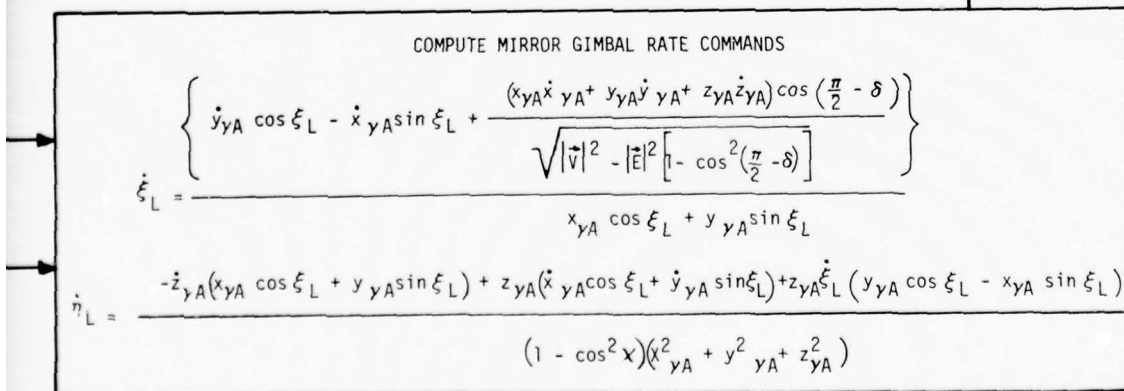 COMPUTE MIRROR GIMBAL RATE COMMANDS
ξ̇_L = { ẏ_γA cos ξ_L - ẋ_γA sin ξ_L + (x_γA ẋ_γA + y_γA ẏ_γA + z_γA ż_γA) cos (π/2 - δ) / √(|V⃗|² - |E⃗|² [1 - cos² (π/2 - δ)]) } / x_γA cos ξ_L + y_γA sin ξ_L
η̇_L = -ż_γA (x_γA cos ξ_L + y_γA sin ξ_L) + z_γA (ẋ_γA cos ξ_L + ẏ_γA sin ξ_L) + z_γA ξ̇_L (y_γA cos ξ_L - x_γA sin ξ_L) / (1 - cos² χ)(x²_γA + y²_γA + z²_γA)